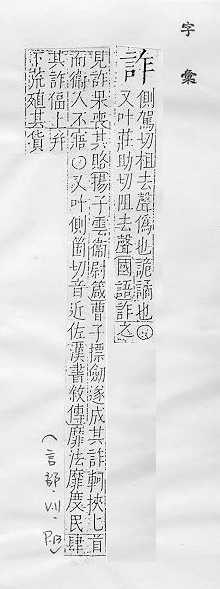 字彙
詐
側駕切柤去聲僞也詭譎也○
又叶莊助切阻去聲國語詐之
見詐果喪其賂揚子雲衞尉箴曹子摽劒遂成其詐軻挾匕首
而衞人不寤○又叶側箇切音近佐漢書敘傳靡法靡度民肆
其詐偪上幷
下荒殖其貨
(言部.VII.P.13)